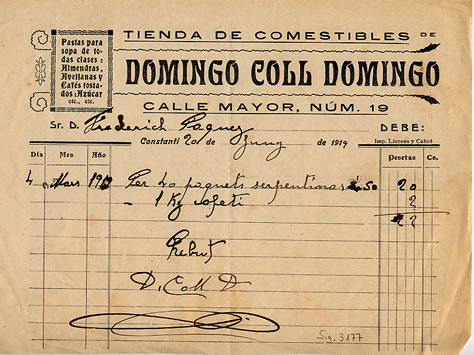 TIENDA DE COMESTIBLES DE
Pastas para
sopa de to-
das clases:
Almendras,
Avellanas y
Cafés tosta-
dos: Azúcar
etc., etc.
DOMINGO COLL DOMINGO
CALLE MAYOR, NÚM. 19
Sr. D. Frederich Pagues
DEBE:
Constantí 20 de Juny de 1919
Imp. Llorens y Cabré
Día Mes Año Pesetas Cs.
4 Mars 19 Per 40 paquets serpentinas 50 20
- 1 Kg cofeti 2
22
Rebut
D. Coll D
Sig. 3177